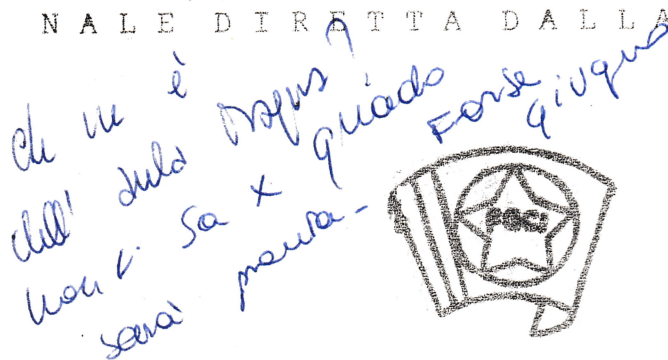 NALE DIRETTA DALLA
che ne è
dell' aula Magna?
non si sa x quando
sarà pronta-
Forse
giugno
FGCI